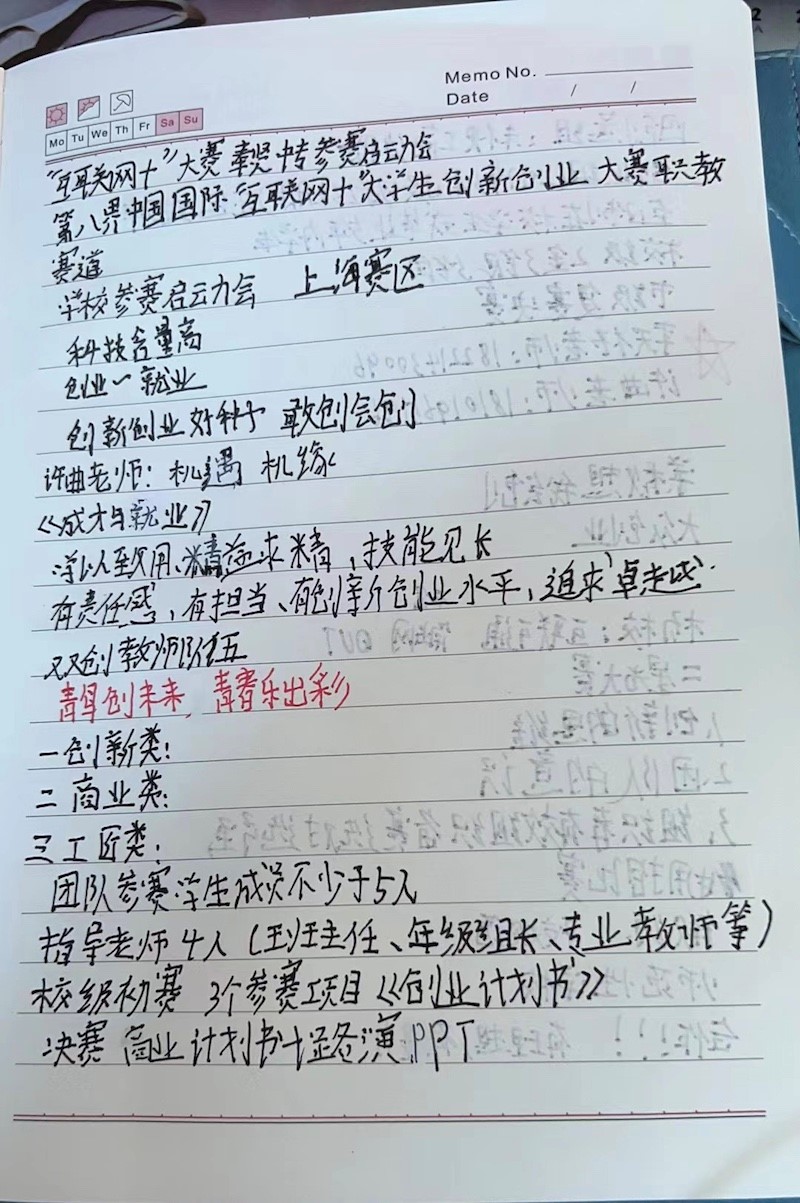 Memo No.
Date / /
Mo Tu We Th Fr Sa Su
“互联网+”大赛奉贤中专参赛启动会
第八界中国国际“互联网+”大学生创新创业大赛职教
赛道
学校参赛启动会 上海赛区
科技含量高
创业—就业
创新创业好种子 敢创会创
许曲老师：机遇 机缘
《成才与就业》
学以致用、精益求精，技能见长
有责任感，有担当、有创新创业水平，追求卓越感.
双创教师队伍
创未来, 青春乐出彩
一创新类：
二商业类：
三工匠类：
团队参赛学生成员不少于5人
指导老师4人（班主任、年级组长、专业教师等）
校级初赛 3个参赛项目《创业计划书》
决赛 商业计划书+路演PPT